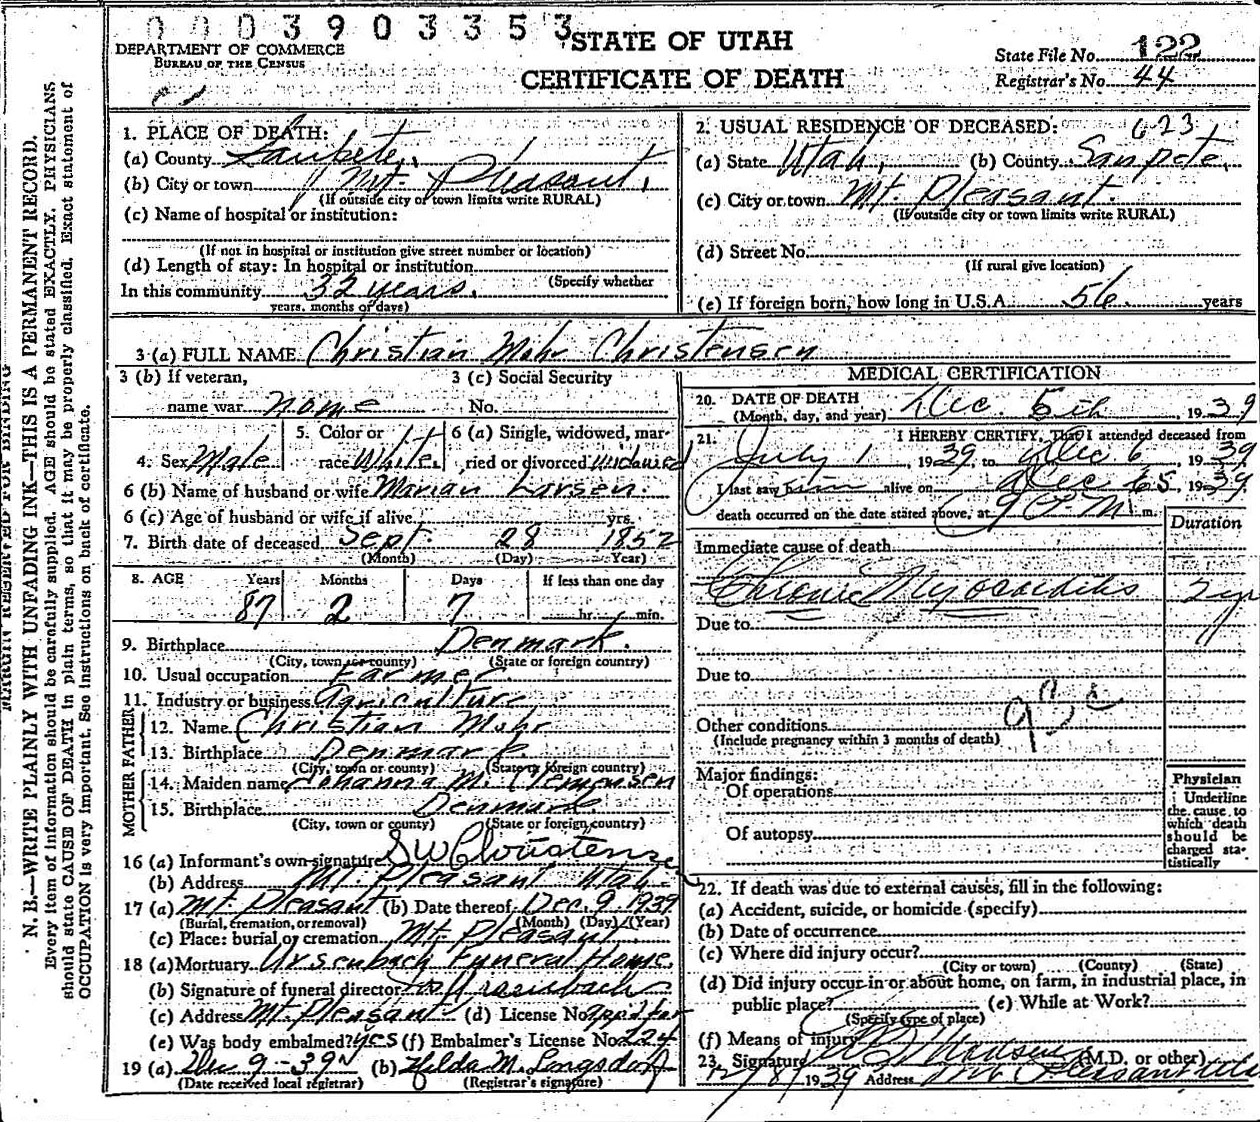 0003903353
STATE OF UTAH
CERTIFICATE OF DEATH
DEPARTMENT OF COMMERCE
BUREAU OF THE CENSUS
State File No. 122
Registrar's No. 44
N. B.—WRITE PLAINLY WITH UNFADING INK—THIS IS A PERMANENT RECORD.
Every item of information should be carefully supplied. AGE should be stated EXACTLY. PHYSICIANS
should state CAUSE OF DEATH in plain terms, so that it may be properly classified. Exact statement of
OCCUPATION is very important. See instructions on back of certificate.
1. PLACE OF DEATH:
(a) County Sanpete,
(b) City or town Mt. Pleasant,
(If outside city or town limits write RURAL)
(c) Name of hospital or institution:
(If not in hospital or institution give street number or location)
(d) Length of stay: In hospital or institution
(Specify whether
In this community 32 years.
years, months or days)
2. USUAL RESIDENCE OF DECEASED: 623
(a) State Utah, (b) County Sanpete,
(c) City or town Mt. Pleasant.
(If outside city or town limits write RURAL)
(d) Street No.
(If rural give location)
(e) If foreign born, how long in U.S.A. 56 years
3 (a) FULL NAME Christian Mohr Christensen
3 (b) If veteran,
name war none
3 (c) Social Security
No.
4. Sex Male
5. Color or
race White
6 (a) Single, widowed, mar-
ried or divorced widowed
6 (b) Name of husband or wife Marian Larsen.
6 (c) Age of husband or wife if alive yrs.
7. Birth date of deceased Sept. 28 1852
(Month) (Day) (Year)
8. AGE Years Months Days If less than one day
87 2 7 hr. min.
9. Birthplace Denmark.
(City, town or county) (State or foreign country)
10. Usual occupation Farmer.
11. Industry or business Agriculture
FATHER
12. Name Christian Mohr
13. Birthplace Denmark
(City, town or county) (State or foreign country)
MOTHER
14. Maiden name Johanna M. Clemensen
15. Birthplace Denmark
(City, town or county) (State or foreign country)
16 (a) Informant's own signature S W Christensen
(b) Address Mt. Pleasant Utah
17 (a) Mt. Pleasant (b) Date thereof Dec. 9 1939
(Burial, cremation, or removal) (Month) (Day) (Year)
(c) Place: burial or cremation Mt. Pleasant.
18 (a) Mortuary Ursenbach Funeral Home.
(b) Signature of funeral director Ursenbach
(c) Address Mt. Pleasant (d) License No.
(e) Was body embalmed? yes (f) Embalmer's License No. 224
19 (a) Dec 9-39 (b) Hilda M. Longsdorf
(Date received local registrar) (Registrar's signature)
MEDICAL CERTIFICATION
20. DATE OF DEATH
(Month, day, and year) Dec. 5th, 1939
21. I HEREBY CERTIFY, That I attended deceased from
July 1, 1939, to Dec 6, 1939
I last saw him alive on Dec 5, 1939
death occurred on the date stated above, at 9 P.M. m.
Duration
Immediate cause of death
Chronic Myocarditis 2 yr
Due to
Due to
Other conditions
(Include pregnancy within 3 months of death)
Major findings:
Of operations
Of autopsy
Physician
Underline
the cause to
which death
should be
charged sta-
tistically
22. If death was due to external causes, fill in the following:
(a) Accident, suicide, or homicide (specify)
(b) Date of occurrence
(c) Where did injury occur?
(City or town) (County) (State)
(d) Did injury occur in or about home, on farm, in industrial place, in
public place? (e) While at Work?
(Specify type of place)
(f) Means of injury
23. Signature (M.D. or other)
12/8/1939 Address Mt. Pleasant Utah